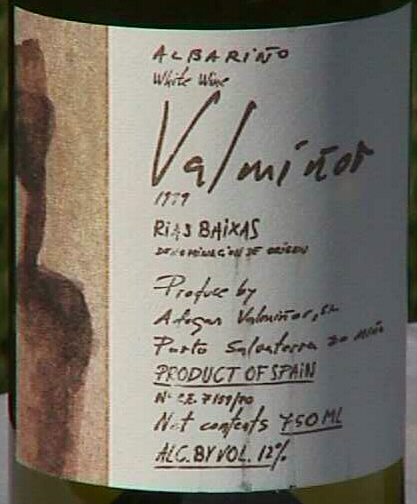 ALBARIÑO
White Wine
Valmiñor
1999
RIAS BAIXAS
DENOMINACION DE ORIGEN
Produce by
Adegas Valmiñor, SL
Porto Salvaterra do Miño
PRODUCT OF SPAIN
Net contents 750 ML
ALC. BY VOL. 12%